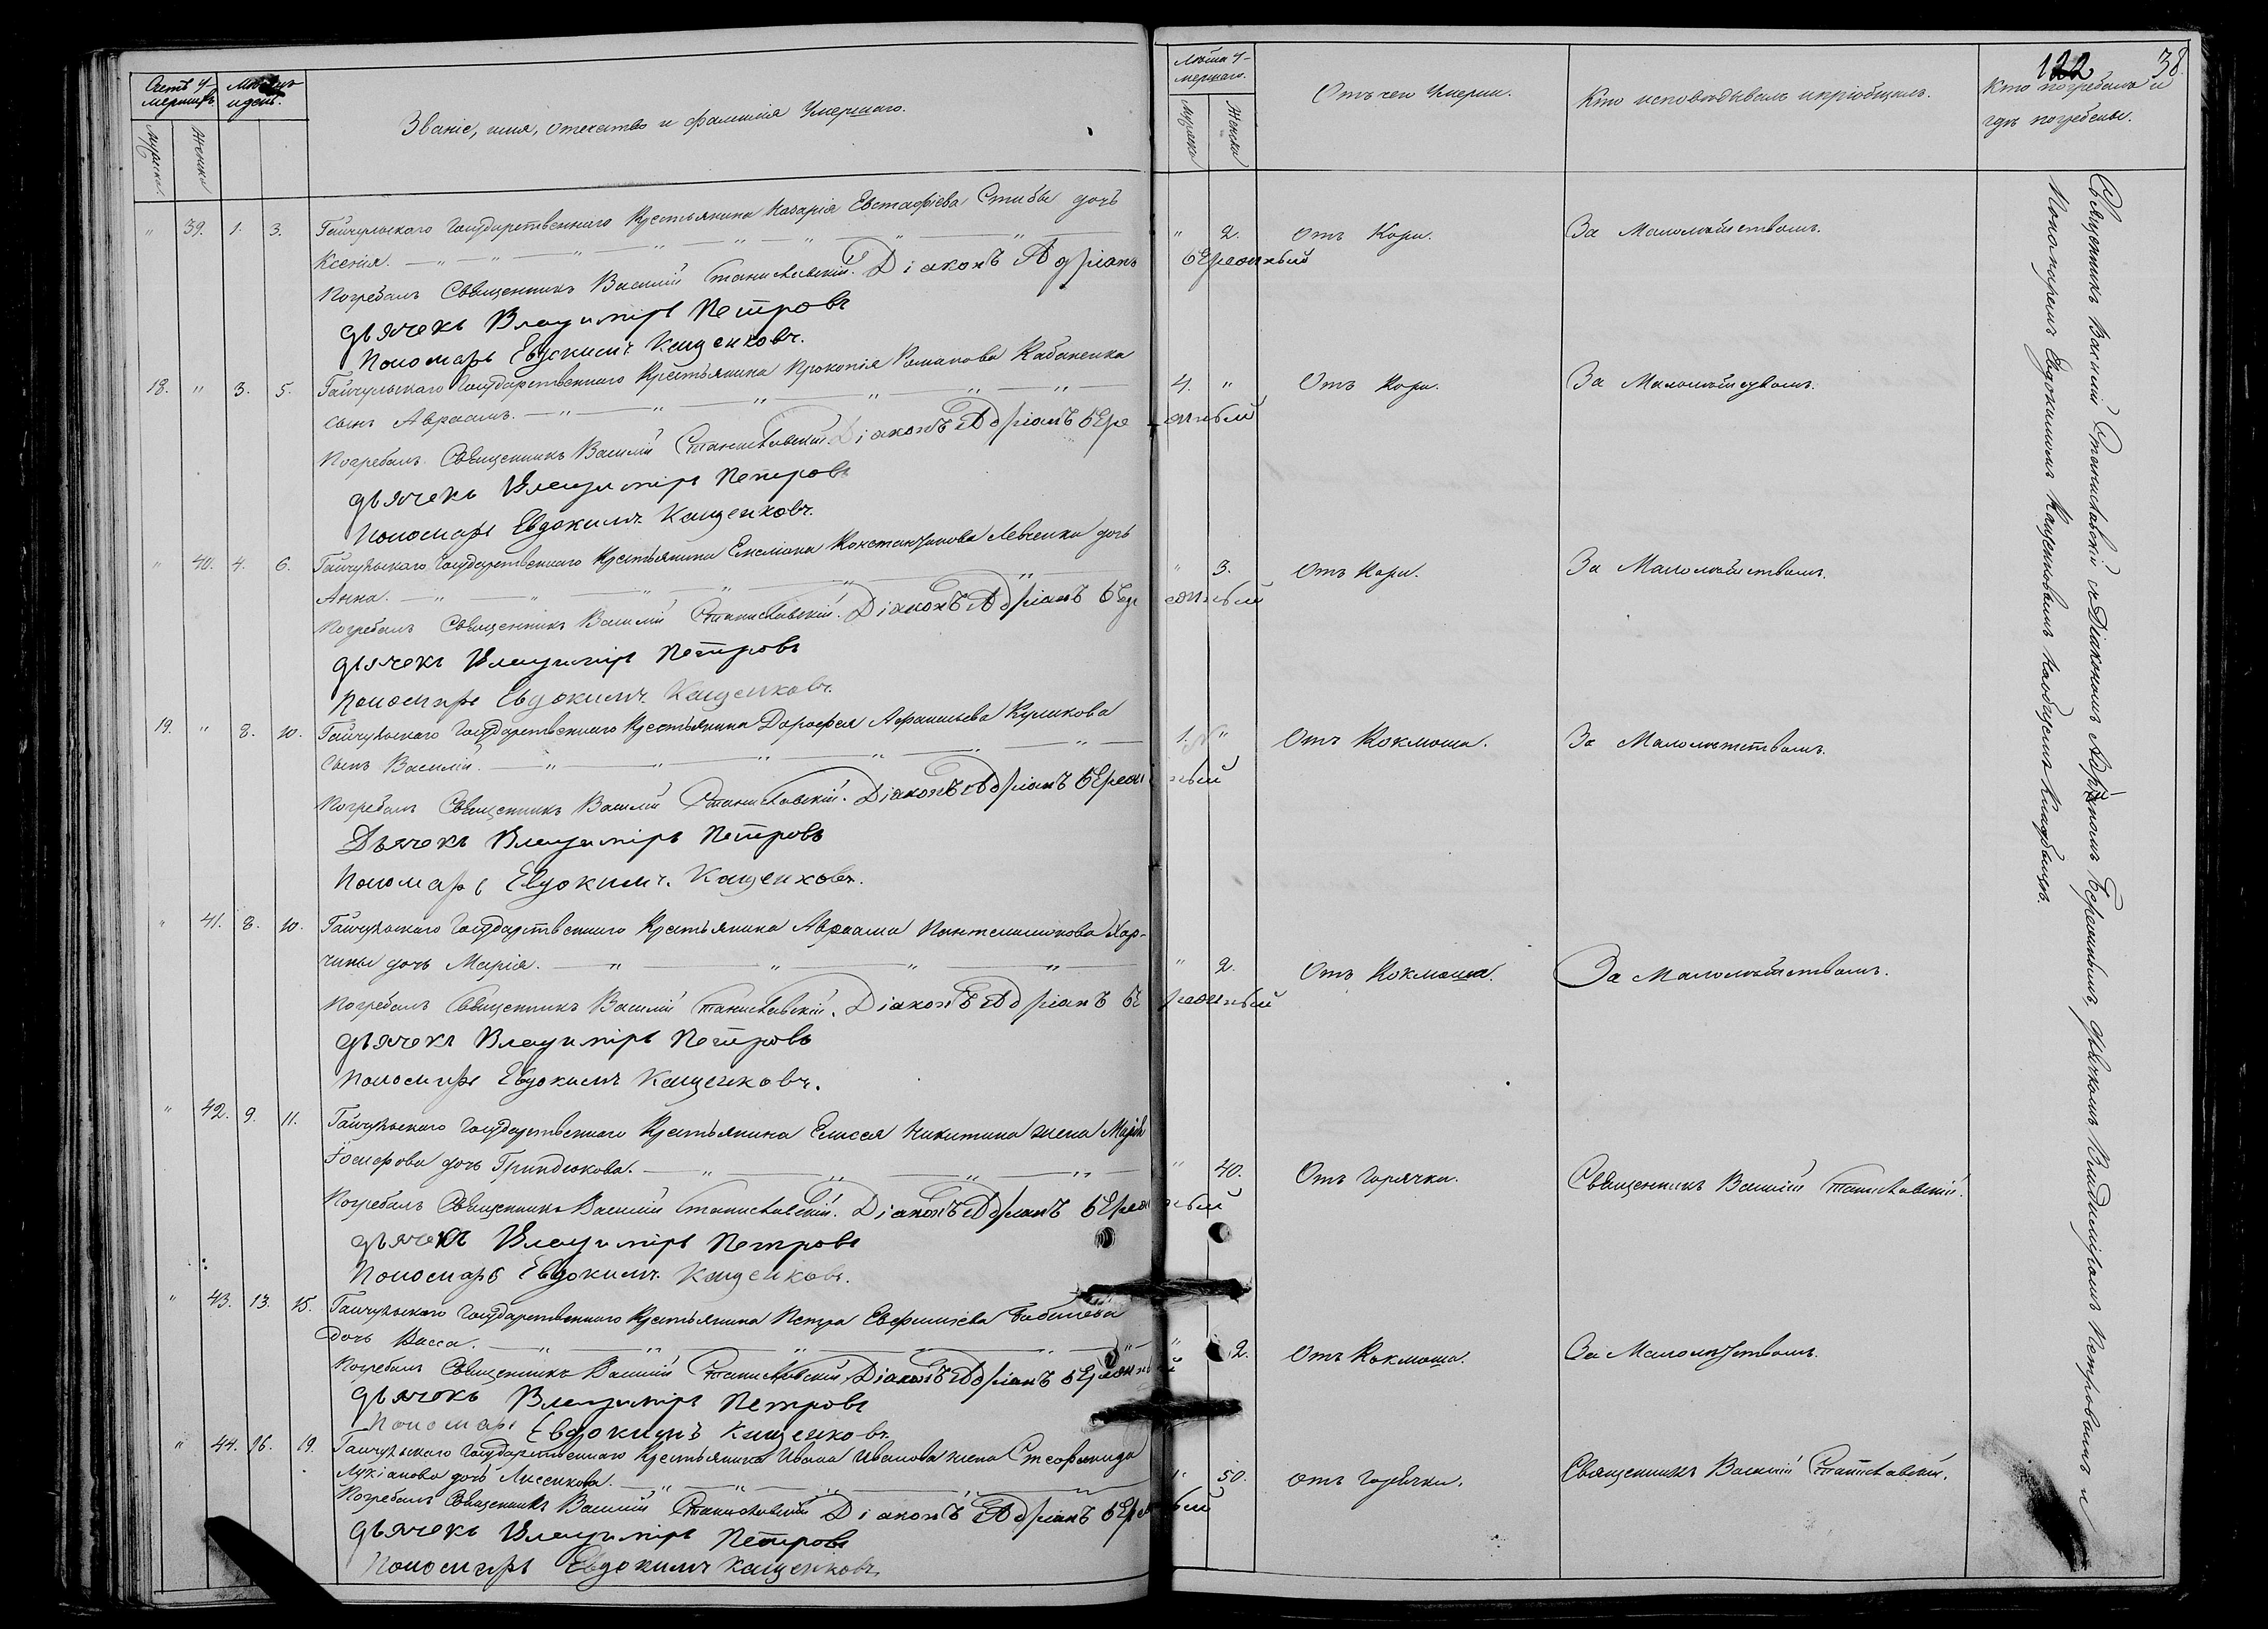 Счетъ у-
мершихъ.
Мѣсяцъ
и день.
Званіе, имя, отечество и фамилія Умершаго.
Мужска.
Женска
" 39. 1. 3. Гайчульскаго Государственнаго Крестьянина Назарія Евстафіева Стибы дочь
Ксенія.
Погребалъ Священникъ Василій Станиславскій. Діаконъ Адріанъ бережный
дьячекъ Владиміръ Петровъ
Пономарь Евдокимъ Кащенковъ.
18. " 3. 5. Гайчульскаго Государственнаго Крестьянина Прокопія Романова Кабаненка
сынъ Авраамъ.
Погребалъ Священникъ Василій Станиславскій. Діаконъ Адріанъ бережный
дьячекъ Владиміръ Петровъ
Пономарь Евдокимъ Кащенковъ.
" 40. 4. 6. Гайчульскаго Государственнаго Крестьянина Емеліана Константинова Левченка дочь
Анна.
Погребалъ Священникъ Василій Станиславскій. Діаконъ Адріанъ бережный
дьячекъ Владиміръ Петровъ
Пономарь Евдокимъ Кащенковъ.
19. " 8. 10. Гайчульскаго Государственнаго Крестьянина Дорофея Афанасьева Куликова
сынъ Василій.
Погребалъ Священникъ Василій Станиславскій. Діаконъ Адріанъ бережный
Дьячекъ Владиміръ Петровъ
Пономарь Евдокимъ Кащенковъ.
" 41. 8. 10. Гайчульскаго Государственнаго Крестьянина Авраама Пантелимонова Хар-
чины дочь Марія.
Погребалъ Священникъ Василій Станиславскій. Діаконъ Адріанъ бережный
дьячекъ Владиміръ Петровъ
Пономарь Евдокимъ Кащенковъ.
" 42. 9. 11. Гайчульскаго Государственнаго Крестьянина Елисея Никитина жена Марія
Іосифова дочь Гриндюкова.
Погребалъ Священникъ Василій Станиславскій. Діаконъ Адріанъ бережный
дьячекъ Владиміръ Петровъ
Пономарь Евдокимъ Кащенковъ.
" 43. 13. 15. Гайчульскаго Государственнаго Крестьянина Петра Евфиміева
дочь Васса.
Погребалъ Священникъ Василій Станиславскій Діаконъ Адріанъ бережный
дьячокъ Владиміръ Петровъ
Пономарь Евдокимъ Кащенковъ
" 44. 16. 19. Гайчульскаго Государственнаго Крестьянина Ивана Иванова жена Стефанида
Лукіанова дочь Лисенкова.
Погребалъ Священникъ Василій Станиславскій Діаконъ Адріанъ бережный
дьячекъ Владиміръ Петровъ
Пономарь Евдокимъ Кащенковъ.
122
38.
Лѣта у-
мершаго.
Мужска
Женска
Отъ чего Умерли.
Кто исповѣдывалъ и пріобщилъ.
Кто погребалъ и
гдѣ погребены.
" 2. Отъ Кори. За Малолѣтствомъ.
4. " Отъ Кори. За Малолѣтствомъ.
" 3. Отъ Кори. За Малолѣтствомъ.
1. " Отъ Коклюша. За Малолѣтствомъ.
" 2. Отъ Коклюша. За Малолѣтствомъ.
" 40. Отъ Горячки. Священникъ Василій Станиславскій.
" 2. Отъ Коклюша. За Малолѣтствомъ.
" 50. Отъ Горячки. Священникъ Василій Станиславскій.
Священникъ Василій Станиславскій съ Діакономъ Адріаномъ Бережнымъ, дьячкомъ Владиміромъ Петровымъ и
Пономаремъ Евдокимомъ Кащенковымъ на общемъ Кладбищѣ.